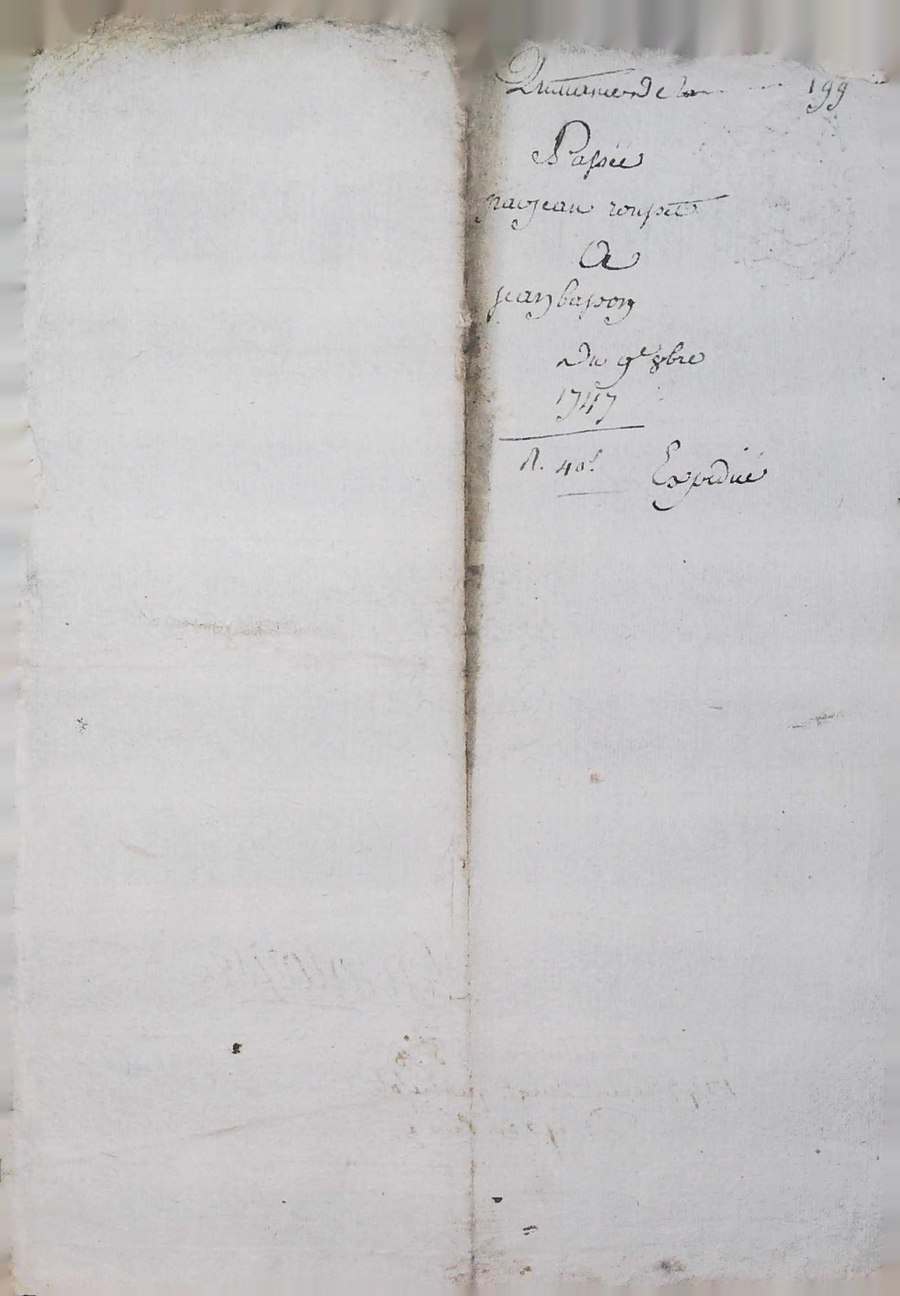 Quittance de la 199
Passée
par jean rouset
A
jean basson
Du 9e 8bre
1747
R. 40s
Expedié